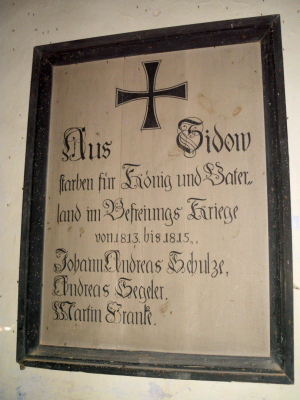 Aus Sidow
starben für König und Vater-
land im Befreiungs Kriege
von 1813. bis 1815.,
Johann Andreas Schulze,
Andreas Segeler.
Martin Franke.